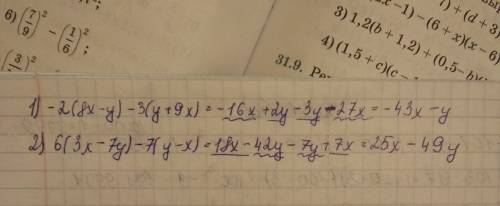 6) (7/9)² − (1/6)² ;
x−1) − (6 + x)(x − 6)
3) 1,2(b + 1,2) + (0,5 − b)
4) (1,5 + c)(c −
31.9.
1) -2(8x-y)-3(y+9x)=-16x+2y-3y-27x=-43x-y
2) 6(3x-7y)-7(y-x)=18x-42y-7y+7x=25x-49y